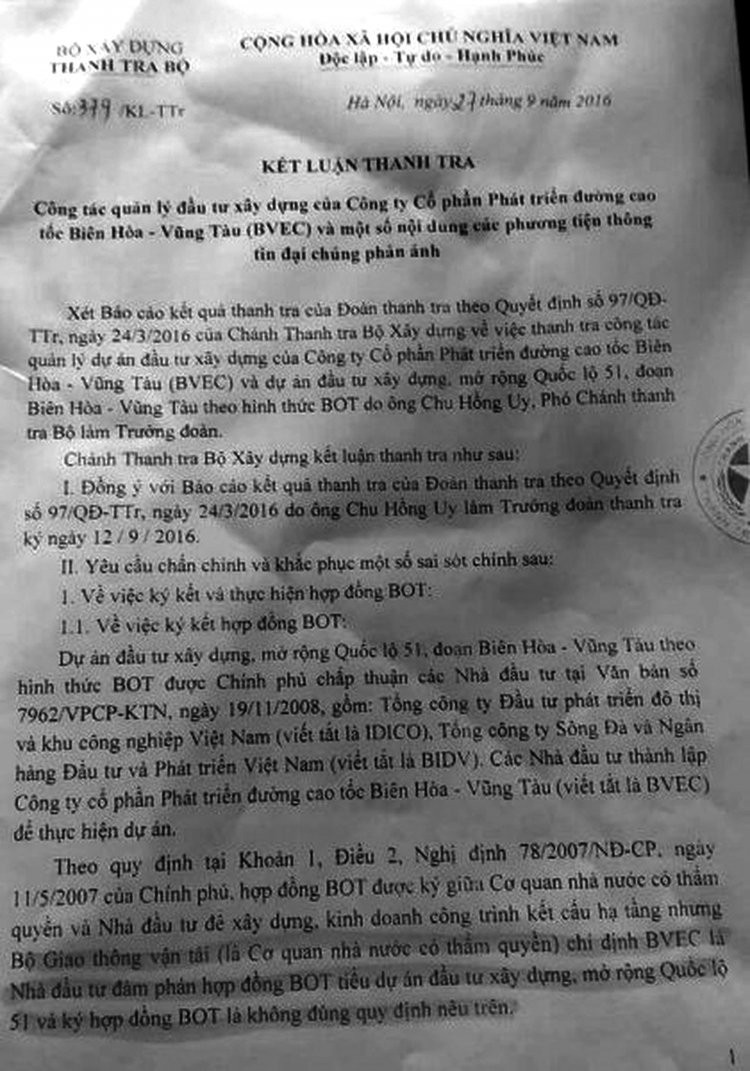 BỘ XÂY DỰNG
THANH TRA BỘ
CỘNG HÒA XÃ HỘI CHỦ NGHĨA VIỆT NAM
Độc lập - Tự do - Hạnh Phúc
Số: 379 /KL-TTr
Hà Nội, ngày 27 tháng 9 năm 2016
KẾT LUẬN THANH TRA
Công tác quản lý đầu tư xây dựng của Công ty Cổ phần Phát triển đường cao
tốc Biên Hòa - Vũng Tàu (BVEC) và một số nội dung các phương tiện thông
tin đại chúng phản ánh
Xét Báo cáo kết quả thanh tra của Đoàn thanh tra theo Quyết định số 97/QĐ-
TTr, ngày 24/3/2016 của Chánh Thanh tra Bộ Xây dựng về việc thanh tra công tác
quản lý dự án đầu tư xây dựng của Công ty Cổ phần Phát triển đường cao tốc Biên
Hòa - Vũng Tàu (BVEC) và dự án đầu tư xây dựng, mở rộng Quốc lộ 51, đoạn
Biên Hòa - Vũng Tàu theo hình thức BOT do ông Chu Hồng Uy, Phó Chánh thanh
tra Bộ làm Trưởng đoàn.
Chánh Thanh tra Bộ Xây dựng kết luận thanh tra như sau:
I. Đồng ý với Báo cáo kết quả thanh tra của Đoàn thanh tra theo Quyết định
số 97/QĐ-TTr, ngày 24/3/2016 do ông Chu Hồng Uy làm Trưởng đoàn thanh tra
ký ngày 12 / 9 / 2016.
II. Yêu cầu chấn chỉnh và khắc phục một số sai sót chính sau:
1. Về việc ký kết và thực hiện hợp đồng BOT:
1.1. Về việc ký kết hợp đồng BOT:
Dự án đầu tư xây dựng, mở rộng Quốc lộ 51, đoạn Biên Hòa - Vũng Tàu theo
hình thức BOT được Chính phủ chấp thuận các Nhà đầu tư tại Văn bản số
7962/VPCP-KTN, ngày 19/11/2008, gồm: Tổng công ty Đầu tư phát triển đô thị
và khu công nghiệp Việt Nam (viết tắt là IDICO), Tổng công ty Sông Đà và Ngân
hàng Đầu tư và Phát triển Việt Nam (viết tắt là BIDV). Các Nhà đầu tư thành lập
Công ty cổ phần Phát triển đường cao tốc Biên Hòa - Vũng Tàu (viết tắt là BVEC)
để thực hiện dự án.
Theo quy định tại Khoản 1, Điều 2, Nghị định 78/2007/NĐ-CP, ngày
11/5/2007 của Chính phủ, hợp đồng BOT được ký giữa Cơ quan nhà nước có thẩm
quyền và Nhà đầu tư để xây dựng, kinh doanh công trình kết cấu hạ tầng nhưng
Bộ Giao thông vận tải (là Cơ quan nhà nước có thẩm quyền) chỉ định BVEC là
Nhà đầu tư đàm phán hợp đồng BOT tiểu dự án đầu tư xây dựng, mở rộng Quốc lộ
51 và ký hợp đồng BOT là không đúng quy định nêu trên.
1